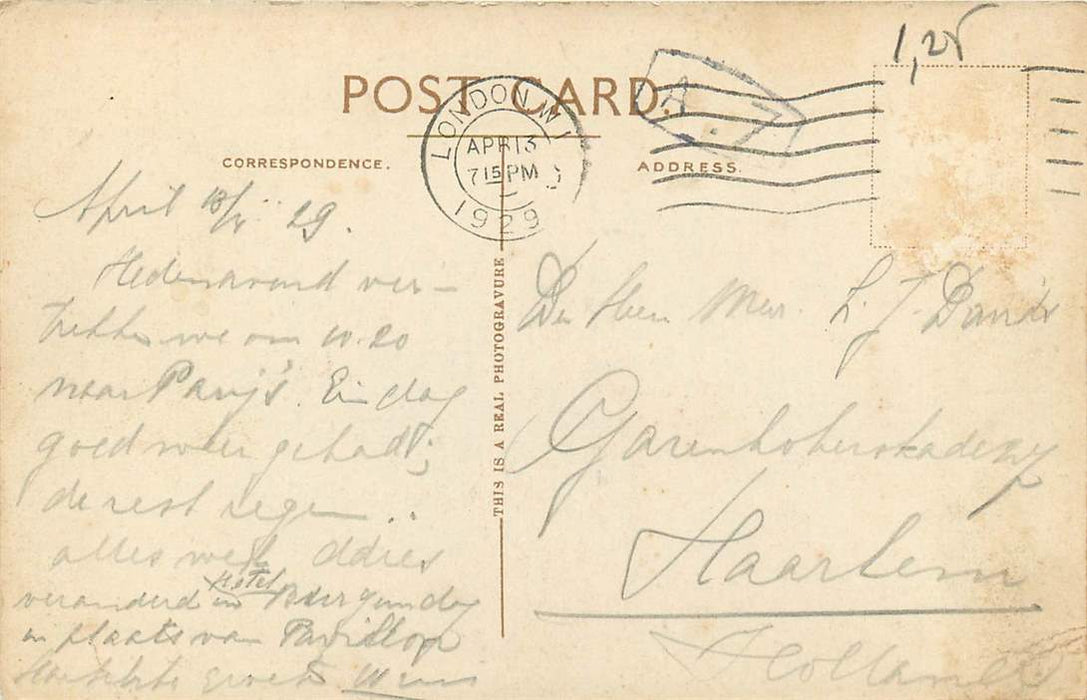 1,25
POST CARD.
LONDON. W.1
APR 13
7 15 PM
1929
A
CORRESPONDENCE.
ADDRESS.
April 29.
Hedenavond ver-
trekken we om 10.20
naar Parijs. Een dag
goed weer gehad;
de rest regen ..
alles wel adres
veranderd in Hotel Burgundy
in plaats van Pavillon
Hartelijke groeten Wim
THIS IS A REAL PHOTOGRAVURE
Den Heer Mevr. L. J.
Garenkokerskade
Haarlem
Holland